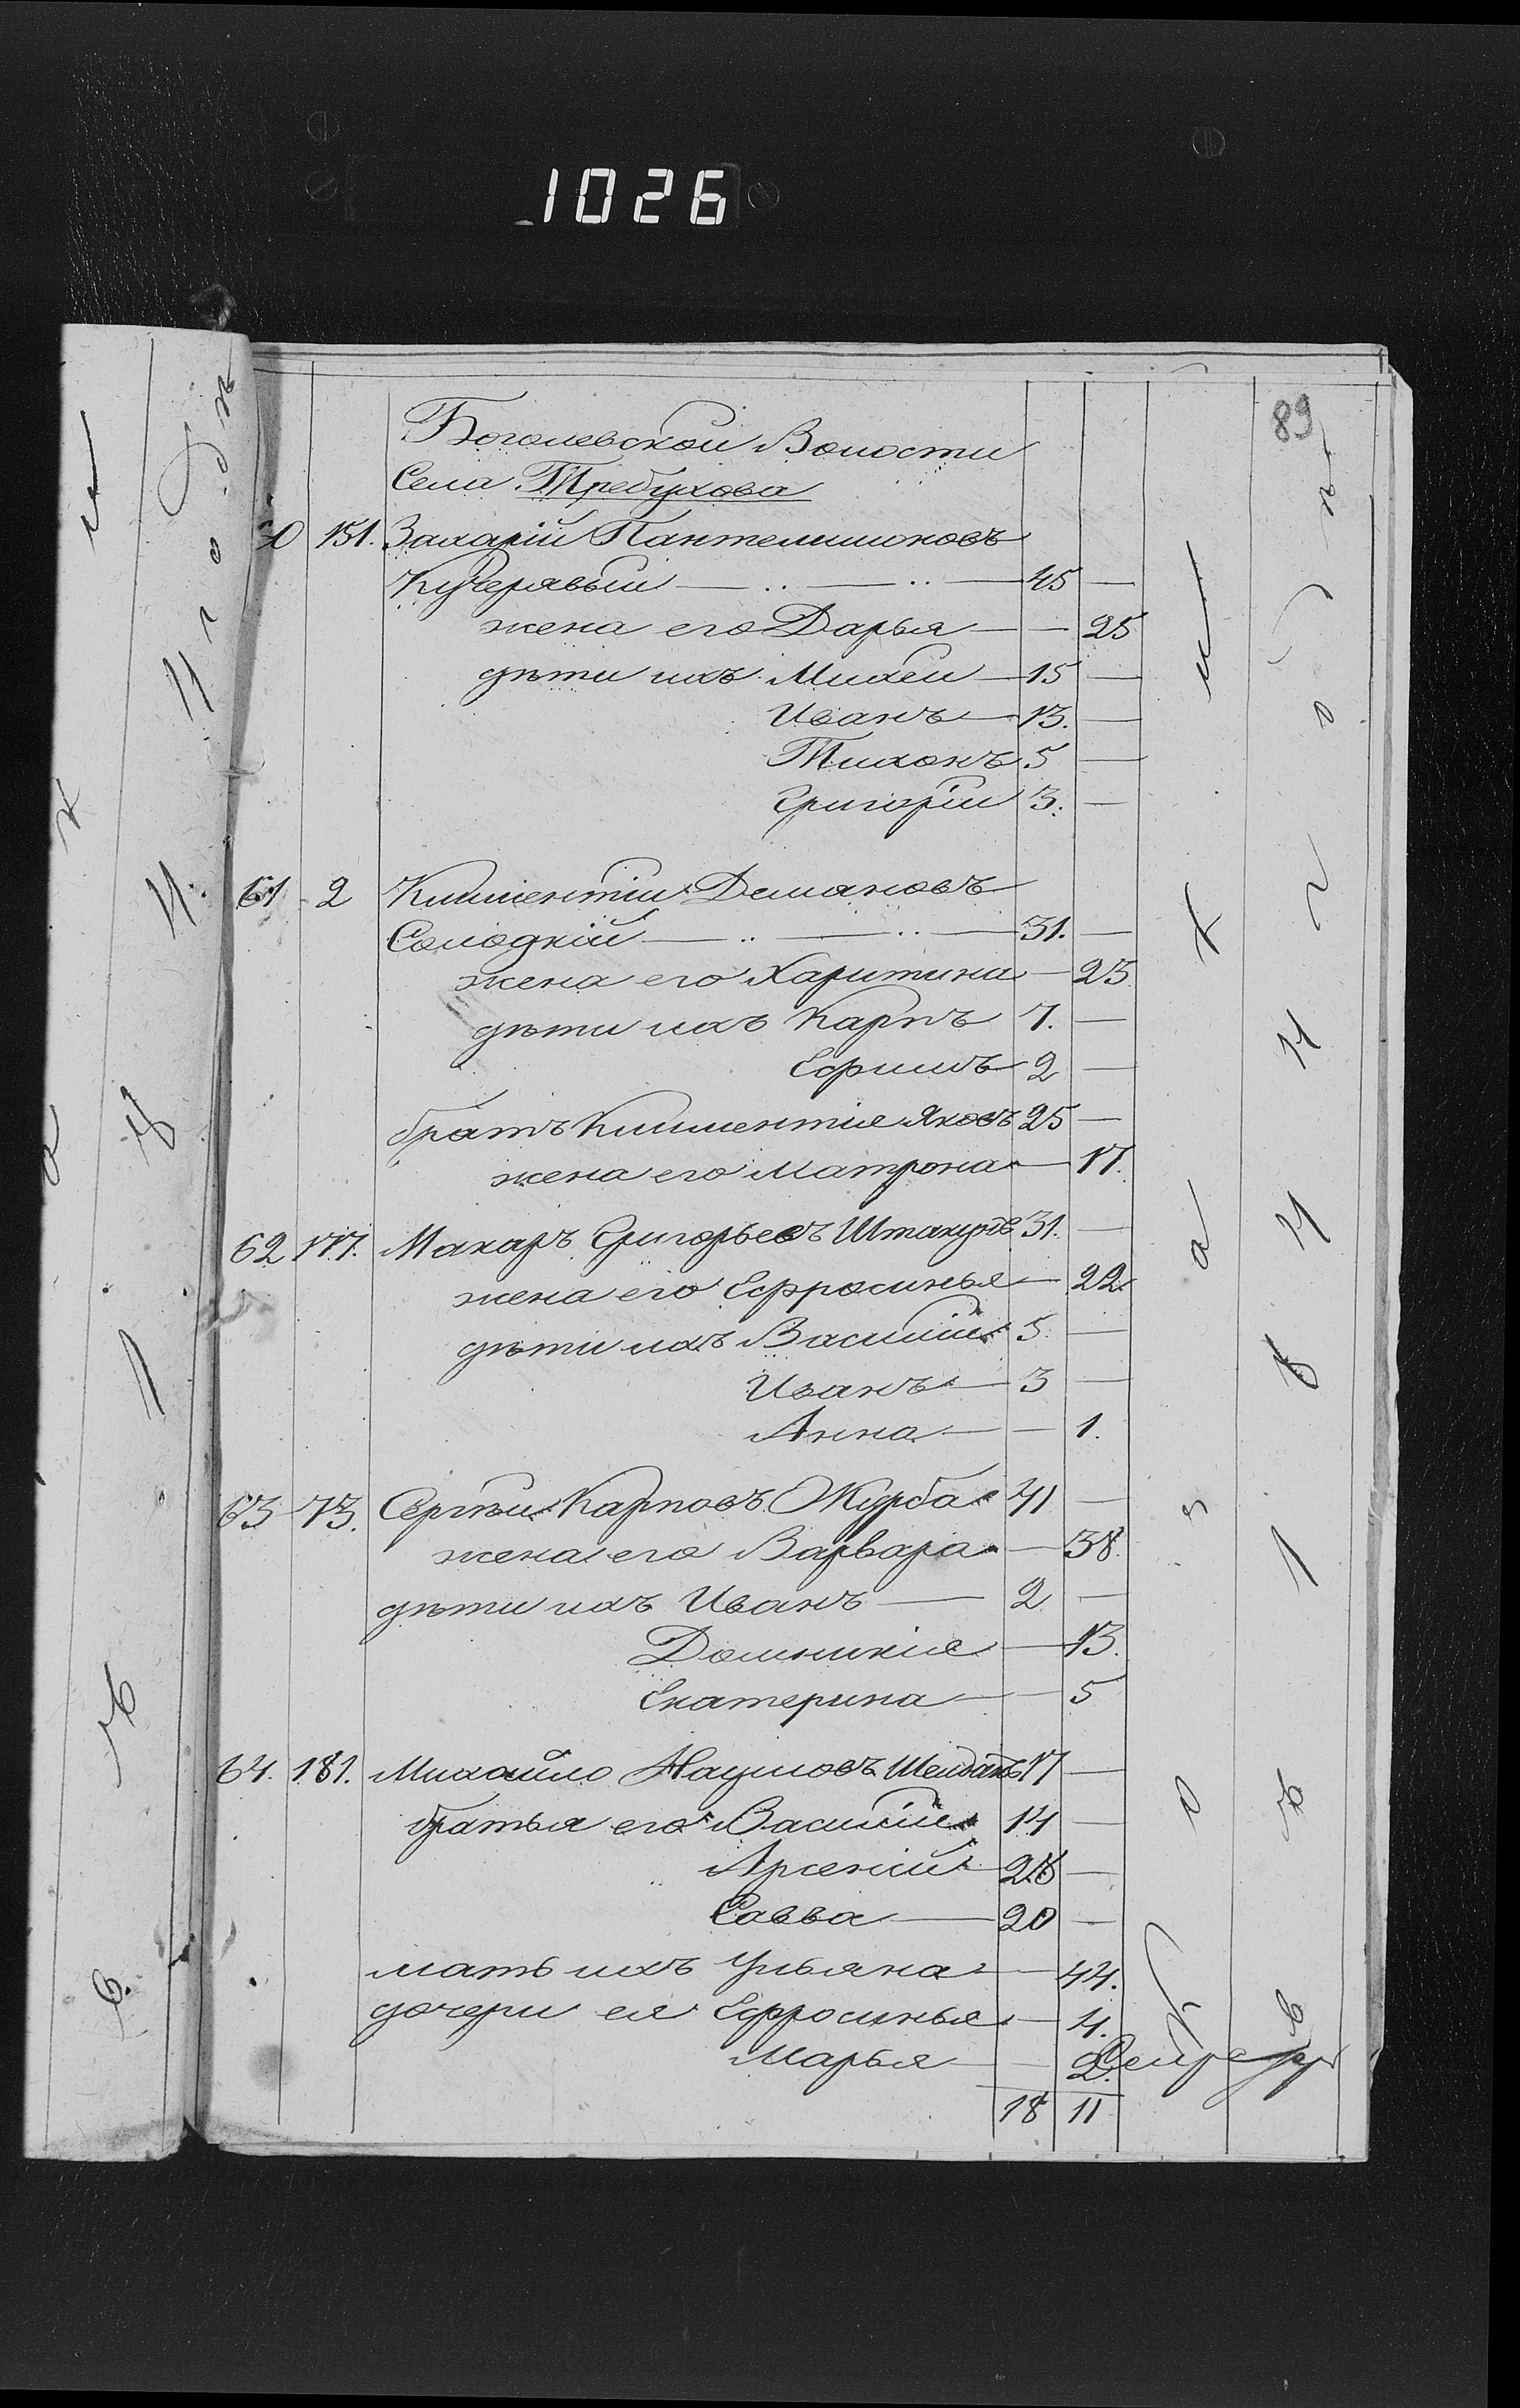 1026
89
Боголевской Волости
Села Требухова
60 151. Захарій Пантелимоновъ
Кучерявый — 45 —
жена его Дарья — 25
дѣти ихъ Михей — 15 —
Иванъ — 13. —
Тихонъ 5 —
Григорій 3. —
61 2 Климентій Демяновъ
Солодкій — 31. —
жена его Харитина — 23
дѣти ихъ Карпъ 7. —
Ефимъ 2 —
братъ Климентія Яковъ 25 —
жена его Матрона — 17.
62 177. Макаръ Григорьевъ 31. —
жена его Ефросинья — 22.
дѣти ихъ Василій 5. —
Иванъ — 3 —
Анна — 1.
63 73. Сергѣй Карповъ Журба 41 —
жена его Варвара — 38.
дѣти ихъ Иванъ — 2 —
Домникія — 13.
Екатерина — 5
64. 181. Михайло Наумовъ 17 —
братья его Василій 14 —
Арсеній —
Савва — 20 —
мать ихъ Ульяна — 44.
дочери ея Ефросинья — 4.
Марья — 2.
18 11